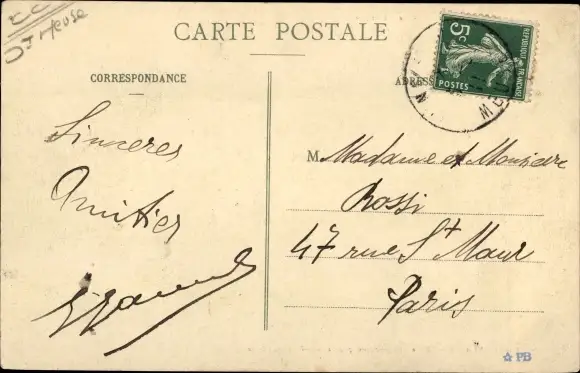 CARTE POSTALE
CORRESPONDANCE
ADRESSE
5c
REPUBLIQUE FRANÇAISE
POSTES
Sinceres
Amitiés
M Madame et Monsieur
Rossi
47 rue St Maur
Paris
PB